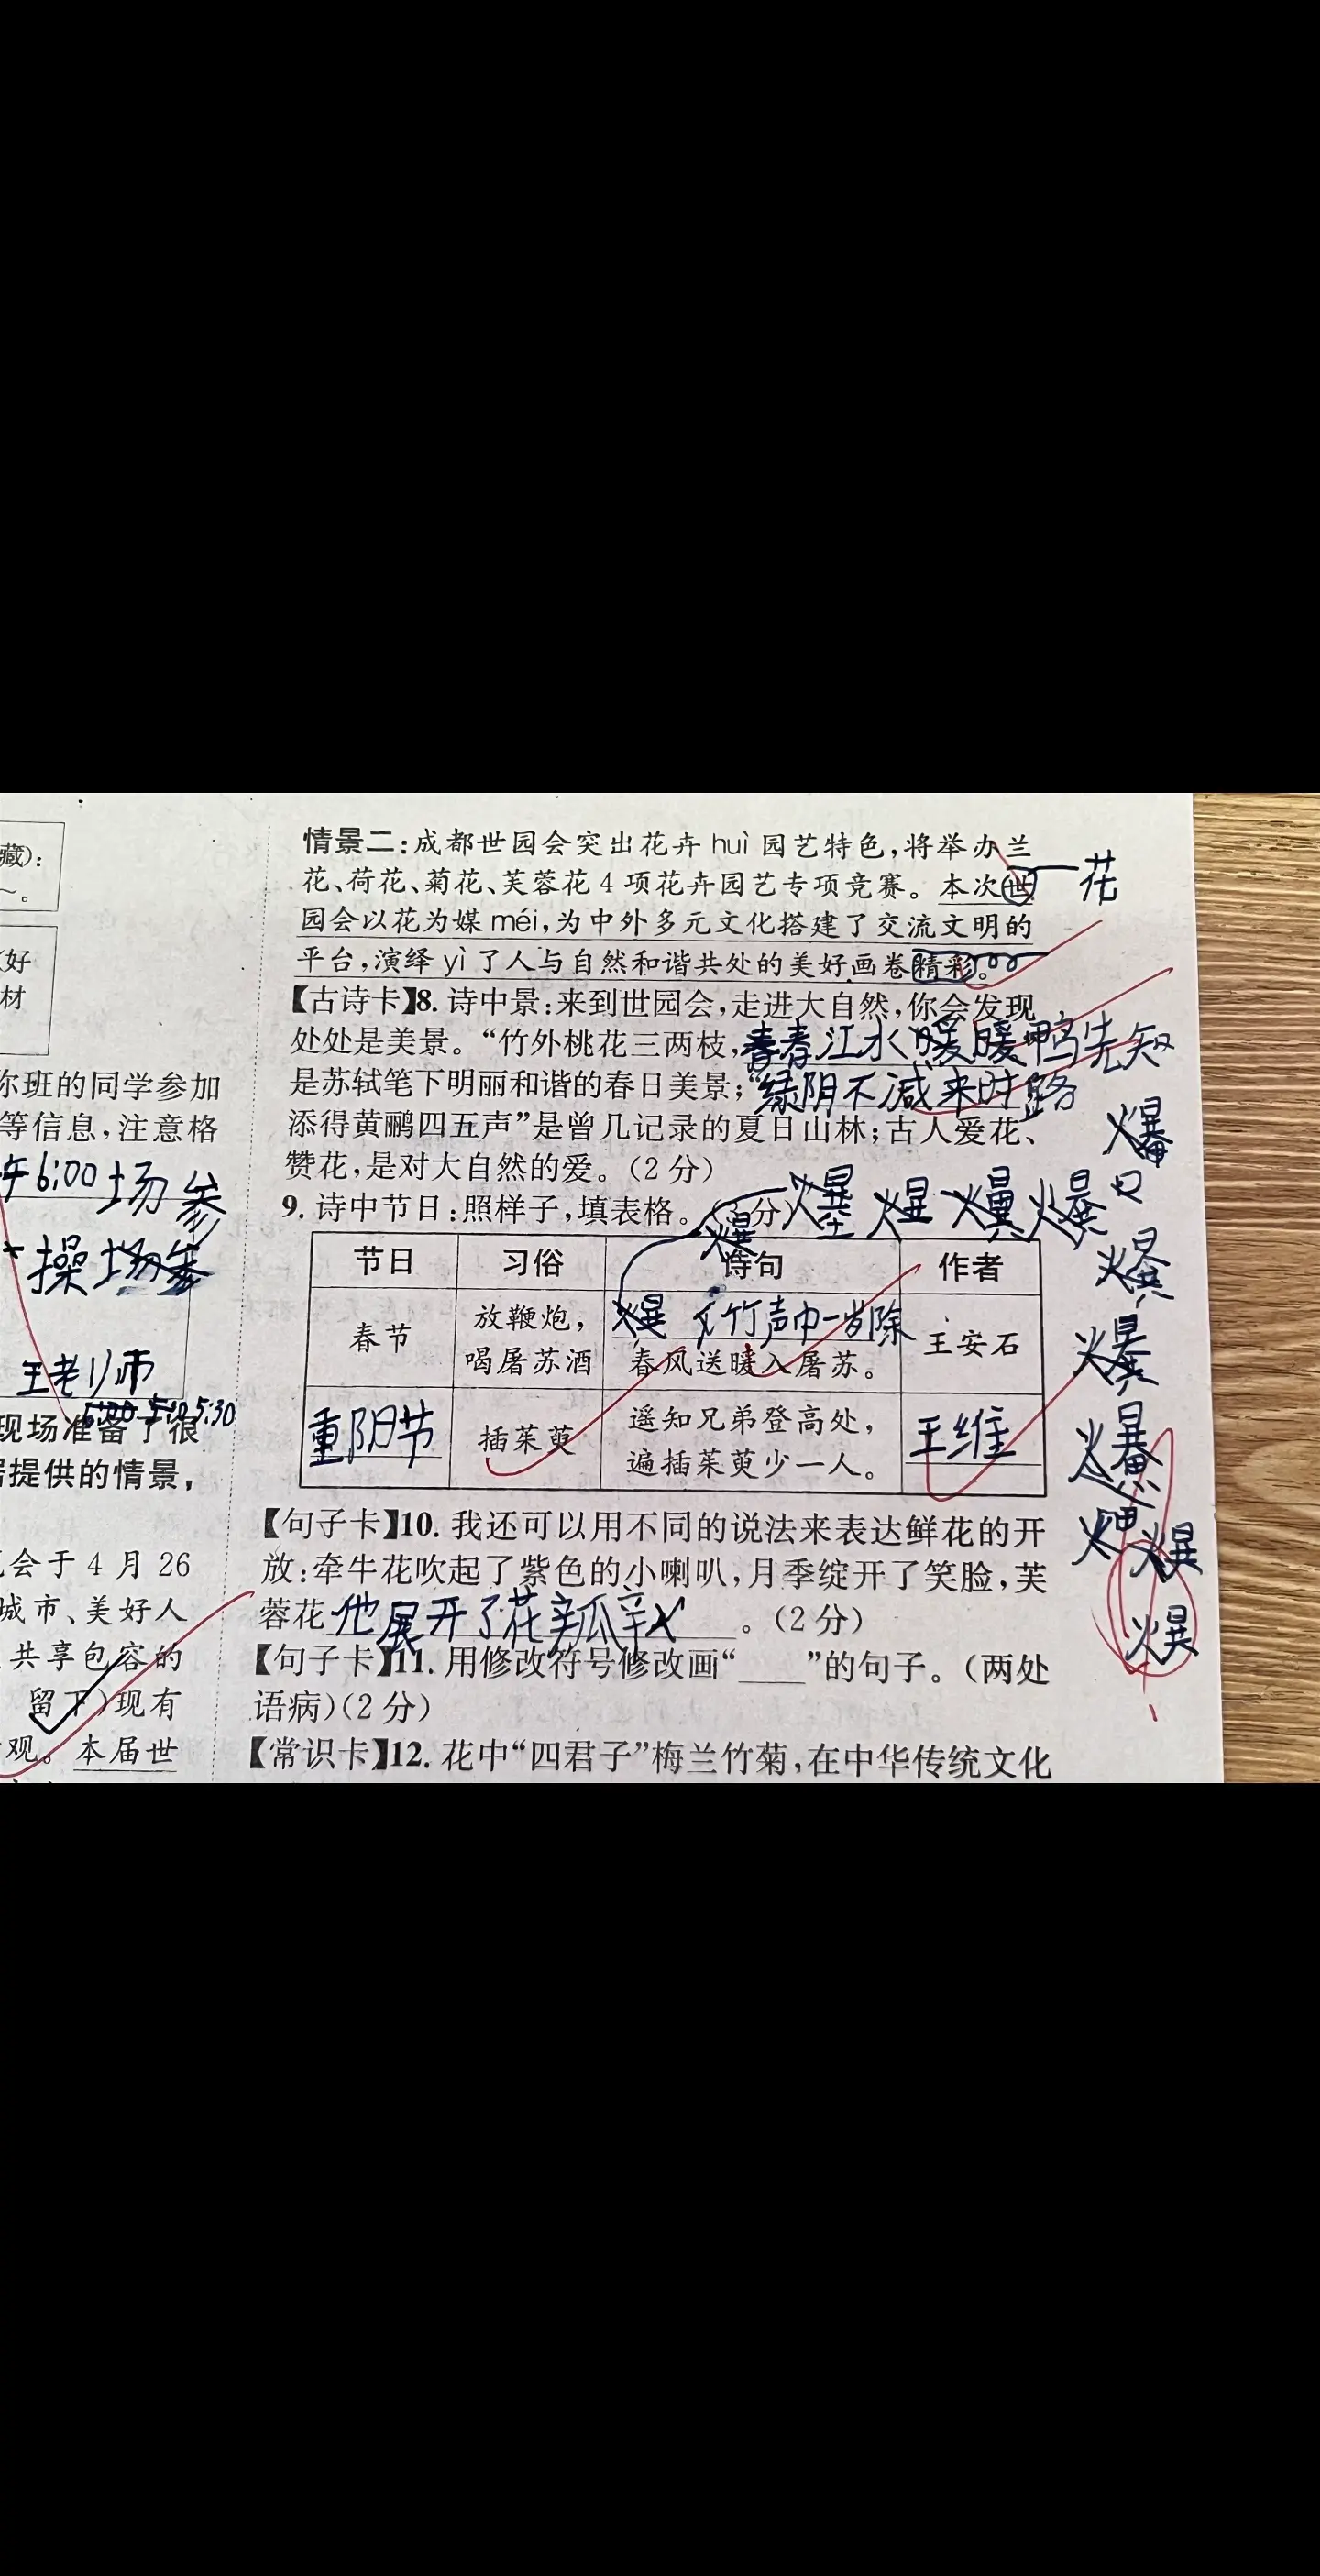 藏):
~。
好
材
你班的同学参加
等信息,注意格
午6:00 场 参
操场参
王老师
6:00 5:00 5:30
现场准备了很
居提供的情景,
会于 4 月 26
城市、美好人
共享包容的
留下)现有
观。本届世
情景二:成都世园会突出花卉 huì 园艺特色,将举办兰
花、荷花、菊花、芙蓉花 4 项花卉园艺专项竞赛。本次世
花
园会以花为媒 méi,为中外多元文化搭建了交流文明的
平台,演绎 yì 了人与自然和谐共处的美好画卷精彩。
【古诗卡】8. 诗中景:来到世园会,走进大自然,你会发现
处处是美景。“竹外桃花三两枝,春春江水暖暖鸭先知
是苏轼笔下明丽和谐的春日美景;“绿阴不减来时路
添得黄鹂四五声”是曾几记录的夏日山林;古人爱花、
赞花,是对大自然的爱。(2 分)
9. 诗中节日:照样子,填表格。(3 分)
节日 习俗 诗句 作者
春节 放鞭炮, 竹声中一岁除 王安石
喝屠苏酒 春风送暖入屠苏。
重阳节 插茱萸 遥知兄弟登高处, 王维
遍插茱萸少一人。
【句子卡】10. 我还可以用不同的说法来表达鲜花的开
放:牵牛花吹起了紫色的小喇叭,月季绽开了笑脸,芙
蓉花他展开了花 。(2 分)
【句子卡】11. 用修改符号修改画“____”的句子。(两处
语病)(2 分)
【常识卡】12. 花中“四君子”梅兰竹菊,在中华传统文化